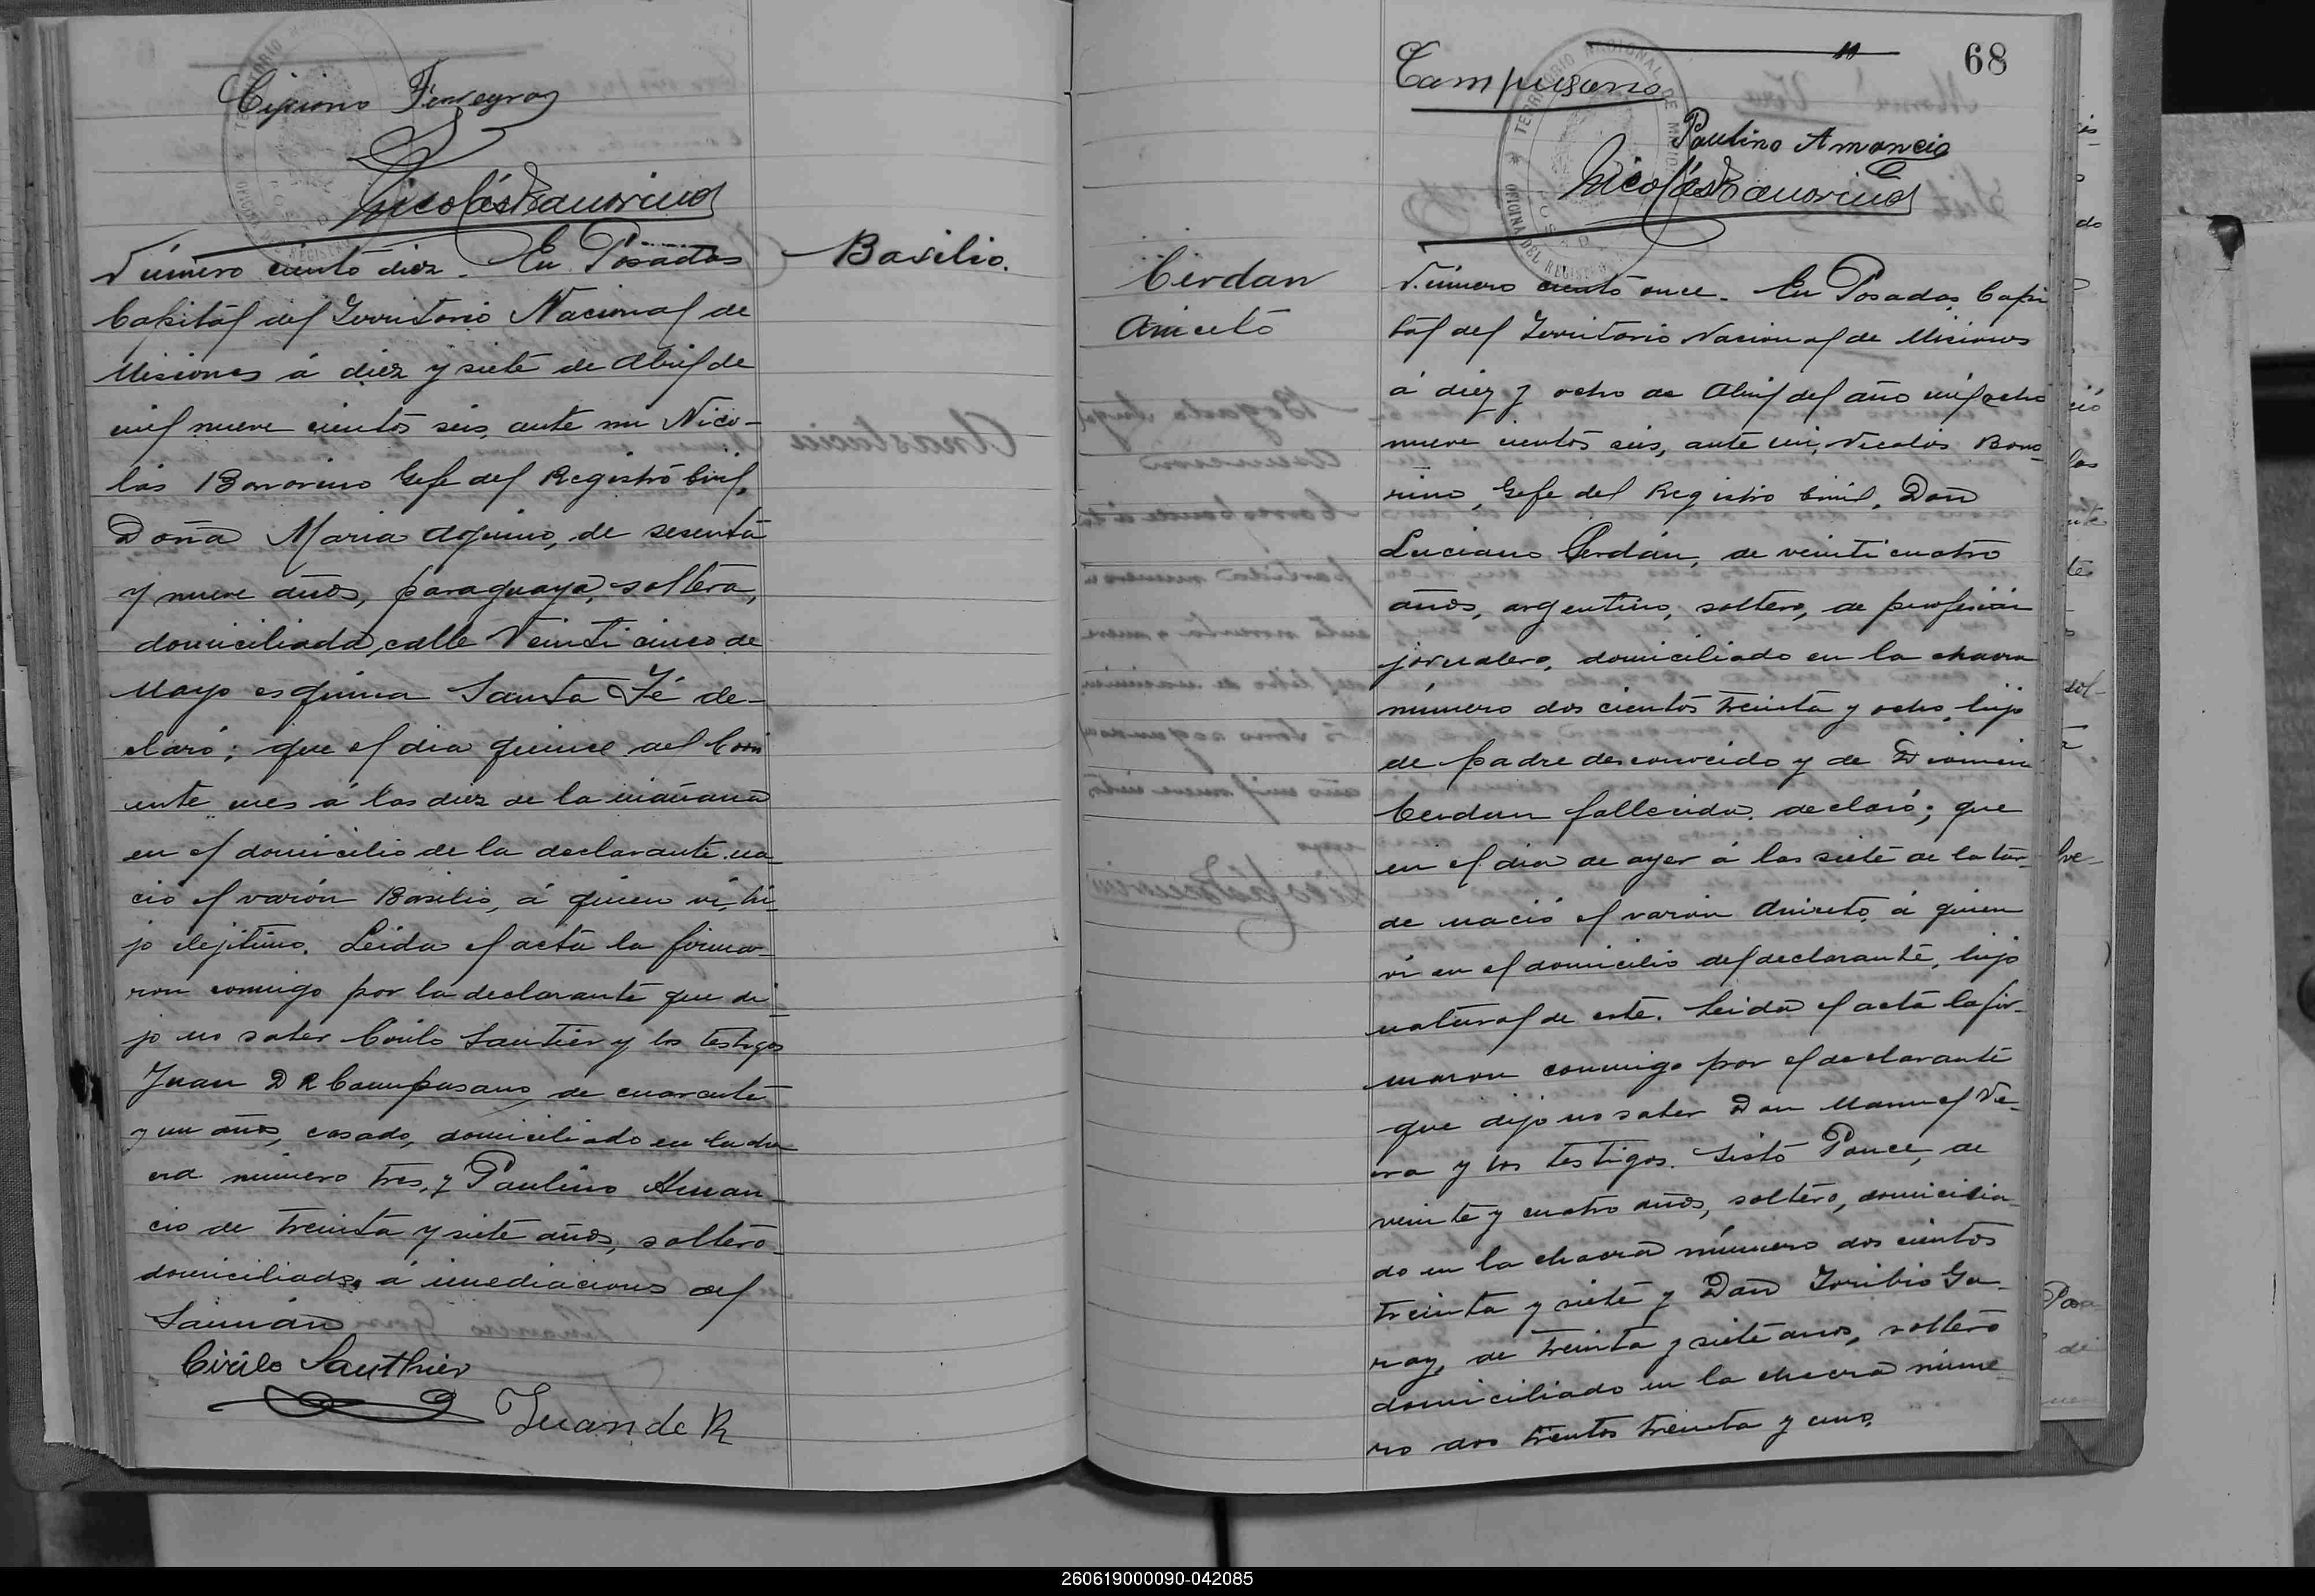 Cipriano Ferreyra
Nicolás Bonorino
Número ciento diez. En Posadas
Capital del Territorio Nacional de
Misiones á diez y siete de Abril de
mil nueve cientos seis, ante mi Nico-
lás Bonorino Gefe del Registro Civil,
Doña Maria Aquino, de sesenta
y nueve años, paraguaya, soltera,
domiciliada, calle Veinti cinco de
Mayo esquina Santa Fé de-
claró; que el dia quince del Corri
ente mes á las diez de la mañana
en el domicilio de la declarante na-
ció el varón Basilio, á quien vi, hi-
jo elejitimo. Leida el acta la firma-
ron conmigo por la declarante que di-
jo no saber Cirilo Sautier y los testigos
Juan D R Campusano de cuarenta
y un años, casado, domiciliado en la cha
cra número tres, y Paulino Aman-
cio de treinta y siete años, soltero
domiciliado, á inmediaciones del
Zaimán
Cirilo Sauthier
Juan de R
Basilio.
68
Campusano
Paulino Amancio
Nicolás Bonorino
TERRITORIO NACIONAL DE MISIONES
OFICINA DEL REGISTRO
POSADAS
Cerdan
Aniceto
Número ciento once. En Posadas, Capi
tal del Territorio Nacional de Misiones
á diez y ocho de Abril del año mil ocho
nueve cientos seis, ante mi, Nicolás Bono-
rino, Gefe del Registro Civil, Don
Luciano Cerdán, de veinti cuatro
años, argentino, soltero, de profesión
jornalero, domiciliado en la chacra
número dos cientos treinta y ocho, hijo
de padre desconocido y de
Cerdan fallecida, declaró; que
en el dia de ayer á las siete de la tar-
de nació el varón Aniceto, á quien
vi en el domicilio del declarante, hijo
natural de este. Leida el acta la fir-
maron conmigo por el declarante
que dijo no saber Don Manuel Ve-
ra y los testigos. Sisto Ponce, de
veinte y cuatro años, soltero, domicilia-
do en la chacra número dos cientos
treinta y siete y Don Toribio Ga-
ray, de treinta y siete años, soltero
domiciliado en la chacra núme
ro dos cientos treinta y uno.
260619000090-042085